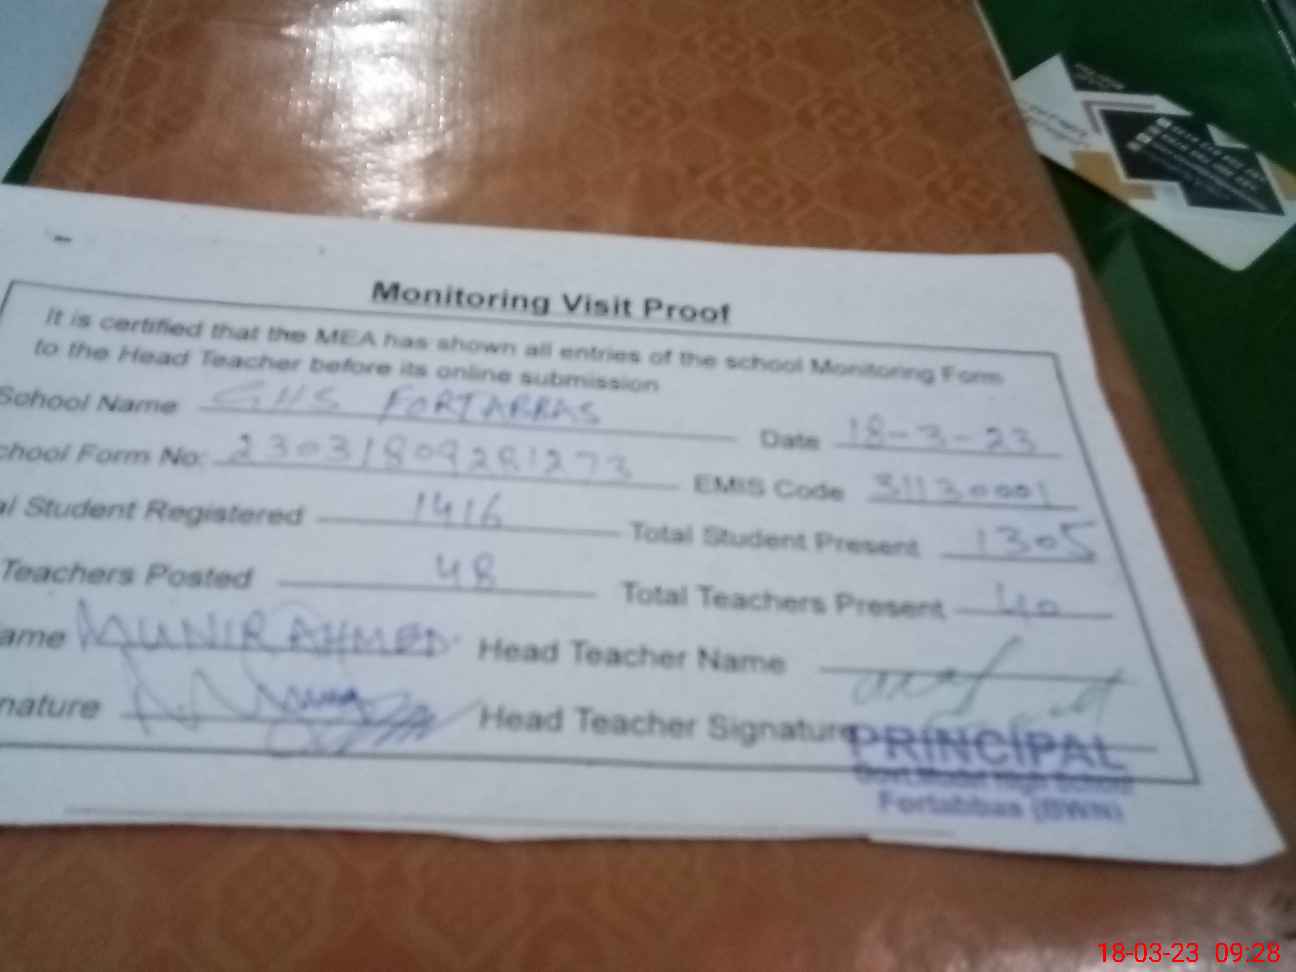 Monitoring Visit Proof
It is certified that the MEA has shown all entries of the school Monitoring Form
to the Head Teacher before its online submission
School Name GHS FORTABBAS Date 18-3-23
chool Form No: 23031809281273 EMIS Code 31130001
al Student Registered 1416 Total Student Present 1305
Teachers Posted 48 Total Teachers Present 40
ame MUNIR AHMED Head Teacher Name
nature Head Teacher Signature
PRINCIPAL
Govt. Model High School
Fortabbas (BWN)
18-03-23 09:28